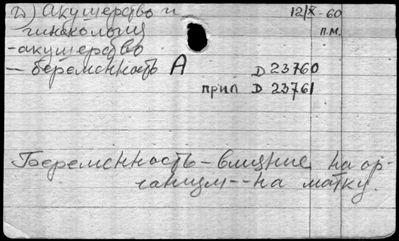 Д) Акушерство и 12/X-60
гинекология п.м.
-акушерство
- беременность А D 23760
прил D 23761
Беременность - влияние на ор-
ганизм -- на матку.